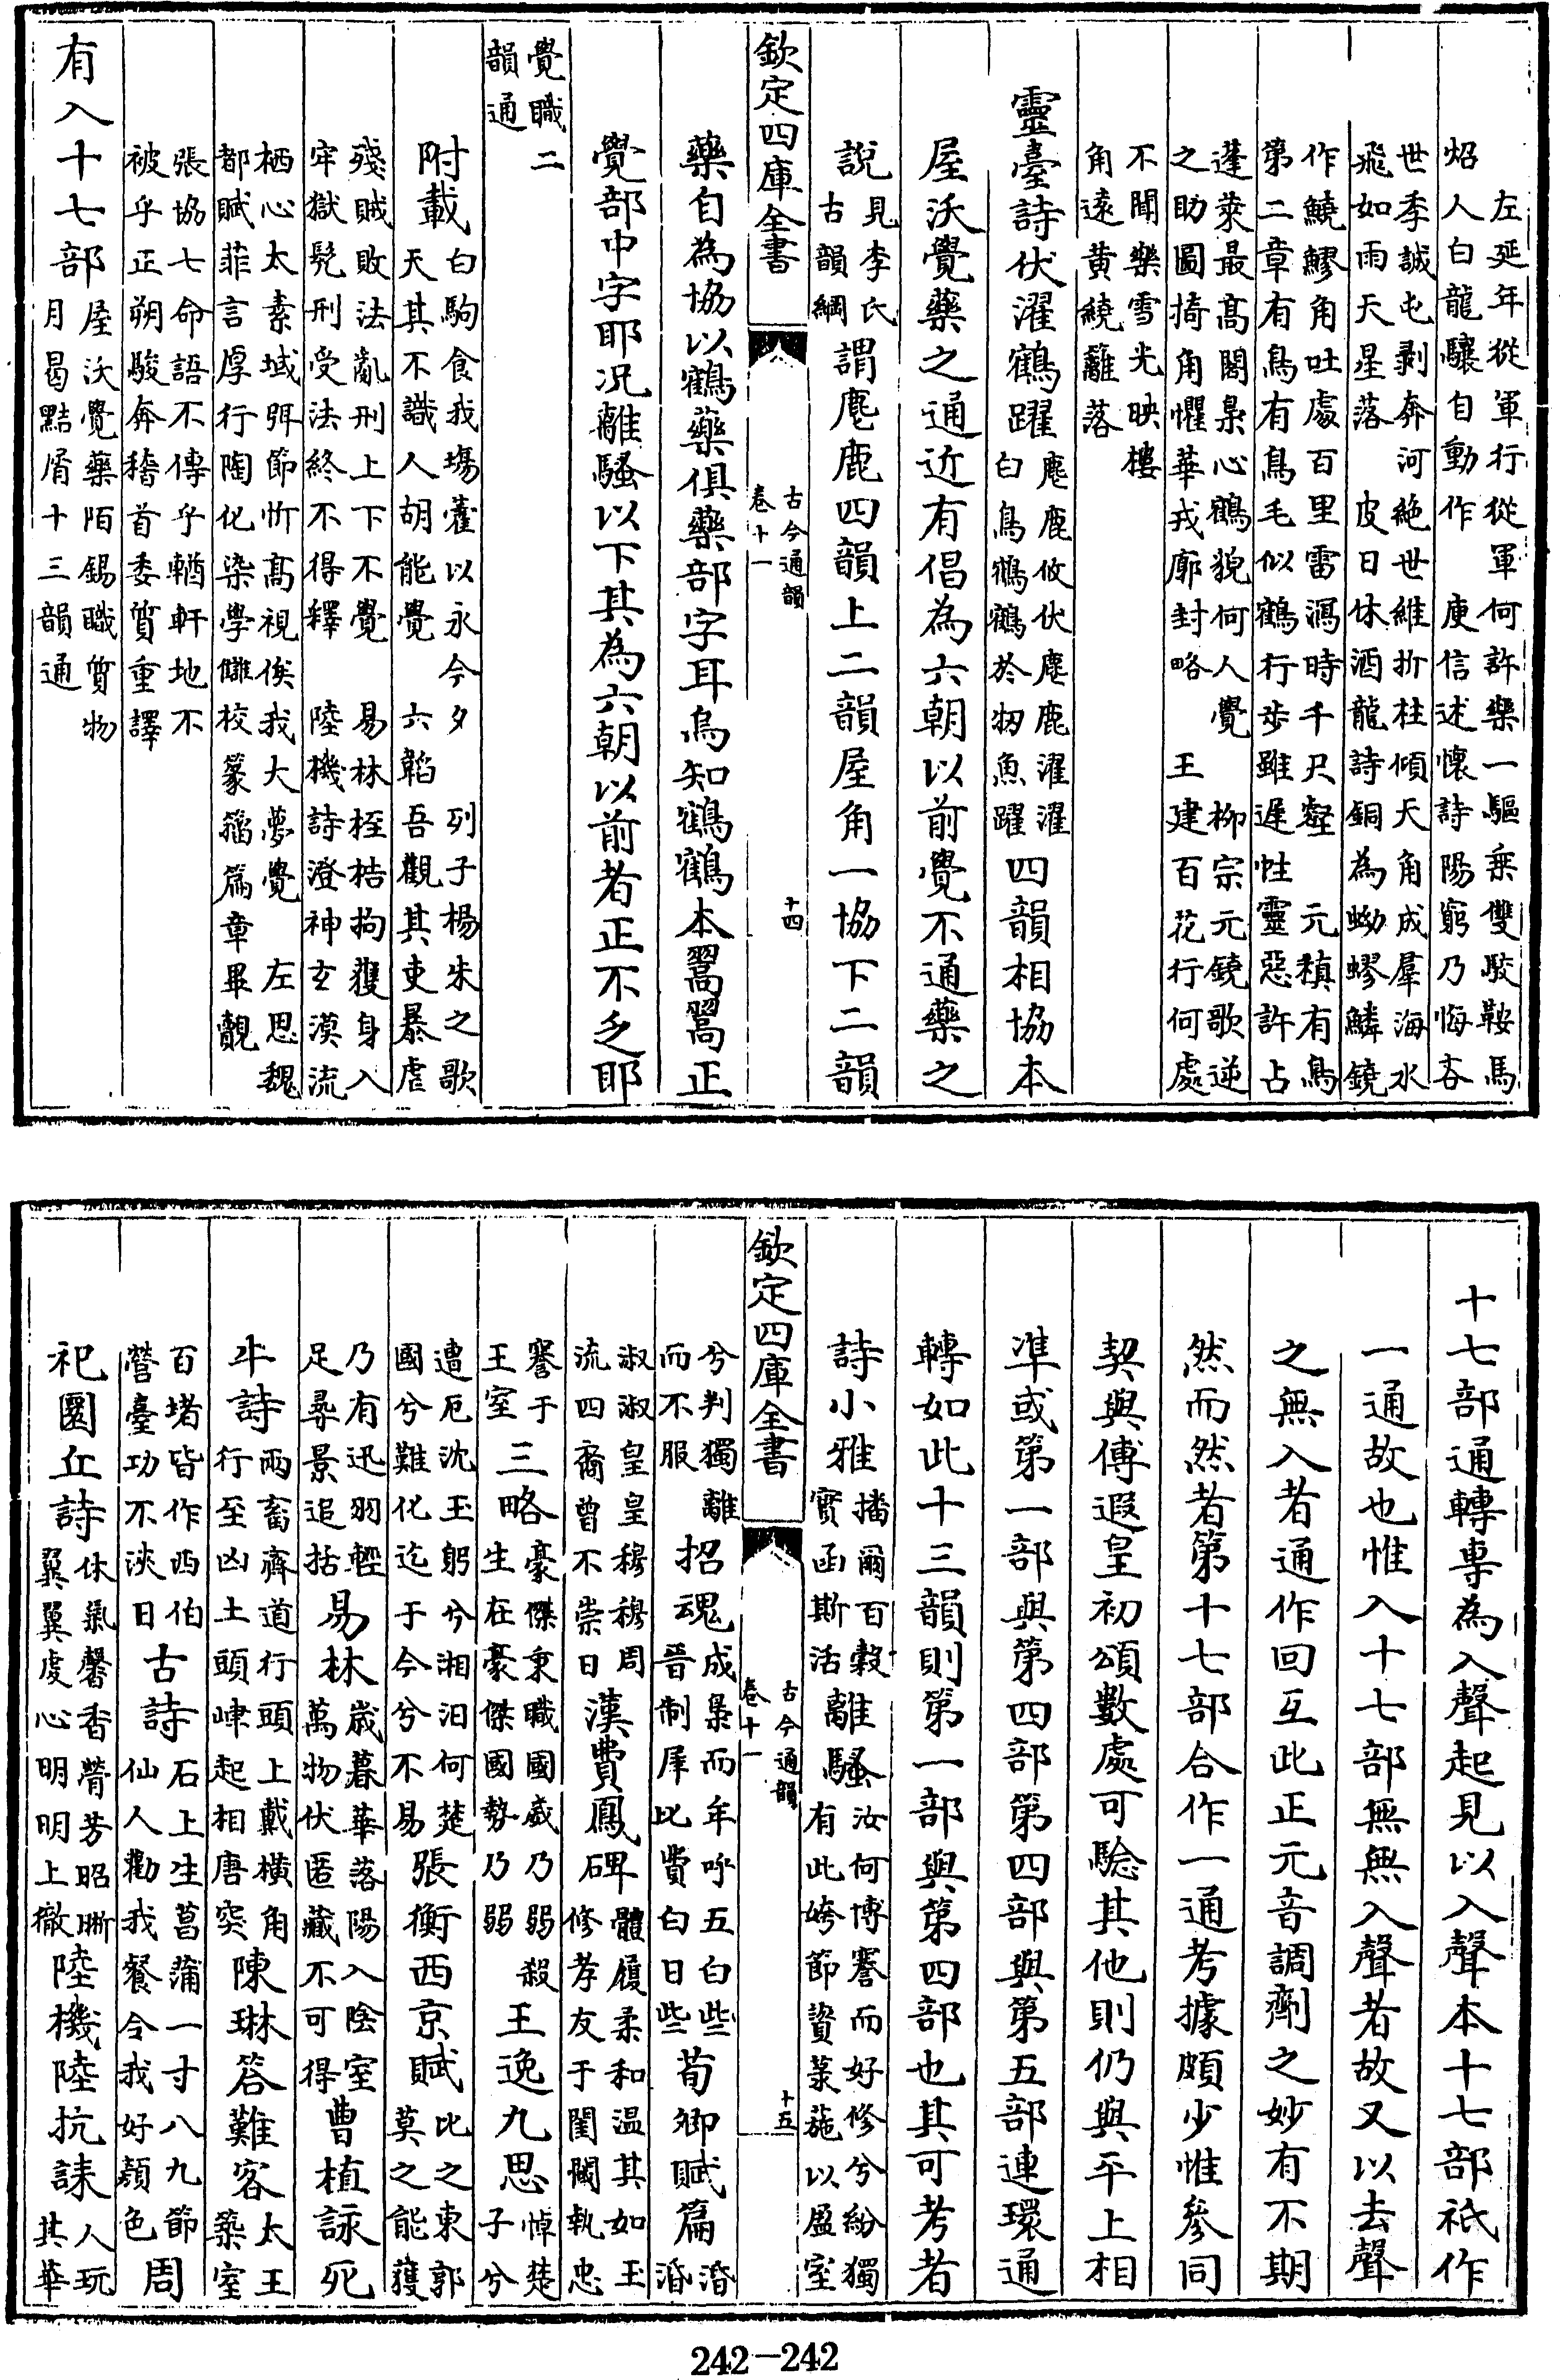 左延年從軍行從軍何許樂一驅乗雙駁鞍馬
炤人白龍驤自動作　庾信述懷詩陽窮乃悔吝
世季誠屯剥奔河絶世維折柱傾天角成羣海水
飛如雨天星落　皮日休酒龍詩銅為蚴蟉鱗鐃
作鱙鏐角吐處百里雷瀉時千尺壑　元稹有鳥
第二章有鳥有鳥毛似鶴行步雖遲性靈惡許占
蓬萊最高閣梟心鶴貌何人覺　柳宗元鐃歌逆
之助圖掎角懼華戎廓封略　王建百花行何處
不聞樂雪光映樓
角遠黄繞籬落
靈臺詩伏濯鶴躍麀鹿攸伏麀鹿濯濯白鳥鶴鶴於牣魚躍四韻相協本
屋沃覺藥之通近有倡為六朝以前覺不通藥之
說見李氏古韻綱謂麀鹿四韻上二韻屋角一協下二韻
欽定四庫全書　古今通韻卷十一　十四
藥自為協以鶴藥俱藥部字耳烏知鶴鶴本翯翯正
覺部中字耶况離騷以下其為六朝以前者正不乏耶
覺職二韻通
附載白駒食我塲藿以永今夕　列子楊朱之歌天其不識人胡能覺　六韜吾觀其吏暴虐
殘賊敗法亂刑上下不覺　易林桎梏拘獲身入
牢獄髡刑受法終不得釋　陸機詩澄神玄漠流
栖心太素域弭節忻髙視俟我大夢覺　左思魏
都賦菲言厚行陶化染學讎校篆籀篇章畢覿
張協七命語不傳乎輶軒地不
被乎正朔駿奔稽首委質重譯
有入十七部屋沃覺藥陌錫職質物月曷黠屑十三韻通
十七部通轉専為入聲起見以入聲本十七部祇作
一通故也惟入十七部無無入聲者故又以去聲
之無入者通作回互此正元音調劑之妙有不期
然而然者第十七部合作一通考據頗少惟參同
契與傅遐皇初頌數處可驗其他則仍與平上相
凖或第一部與第四部第四部與第五部連環通
轉如此十三韻則第一部與第四部也其可考者
詩小雅播爾百榖實函斯活離騷汝何博謇而好修兮紛獨有此姱節薋菉葹以盈室
欽定四庫全書　古今通韻卷十一　十五
兮判獨離而不服招魂成梟而牟呼五白些晉制犀比費白日些荀卿賦篇涽涽
淑淑皇皇穆穆周流四裔曾不崇日漢費鳳碑體履柔和温其如玉修孝友于閨閫執忠
謇于王室三略豪傑秉職國威乃弱殺生在豪傑國勢乃弱王逸九思悼楚子兮
遭厄沈玉躬兮湘汨何楚國兮難化迄于今兮不易張衡西京賦比之東郭莫之能獲
乃有迅羽輕足尋景追括易林歲暮華落陽入陰室萬物伏匿藏不可得曹植詠死
牛詩兩畜齊道行頭上戴横角行至凶土頭峍起相唐突陳琳答難客太王築室
百堵皆作西伯營臺功不浹日古詩石上生菖蒲一寸八九節仙人勸我餐令我好顔色周
祀圜丘詩休氣馨香膋芳昭晣翼翼虔心明明上徹陸機陸抗誄人玩其華
242—242